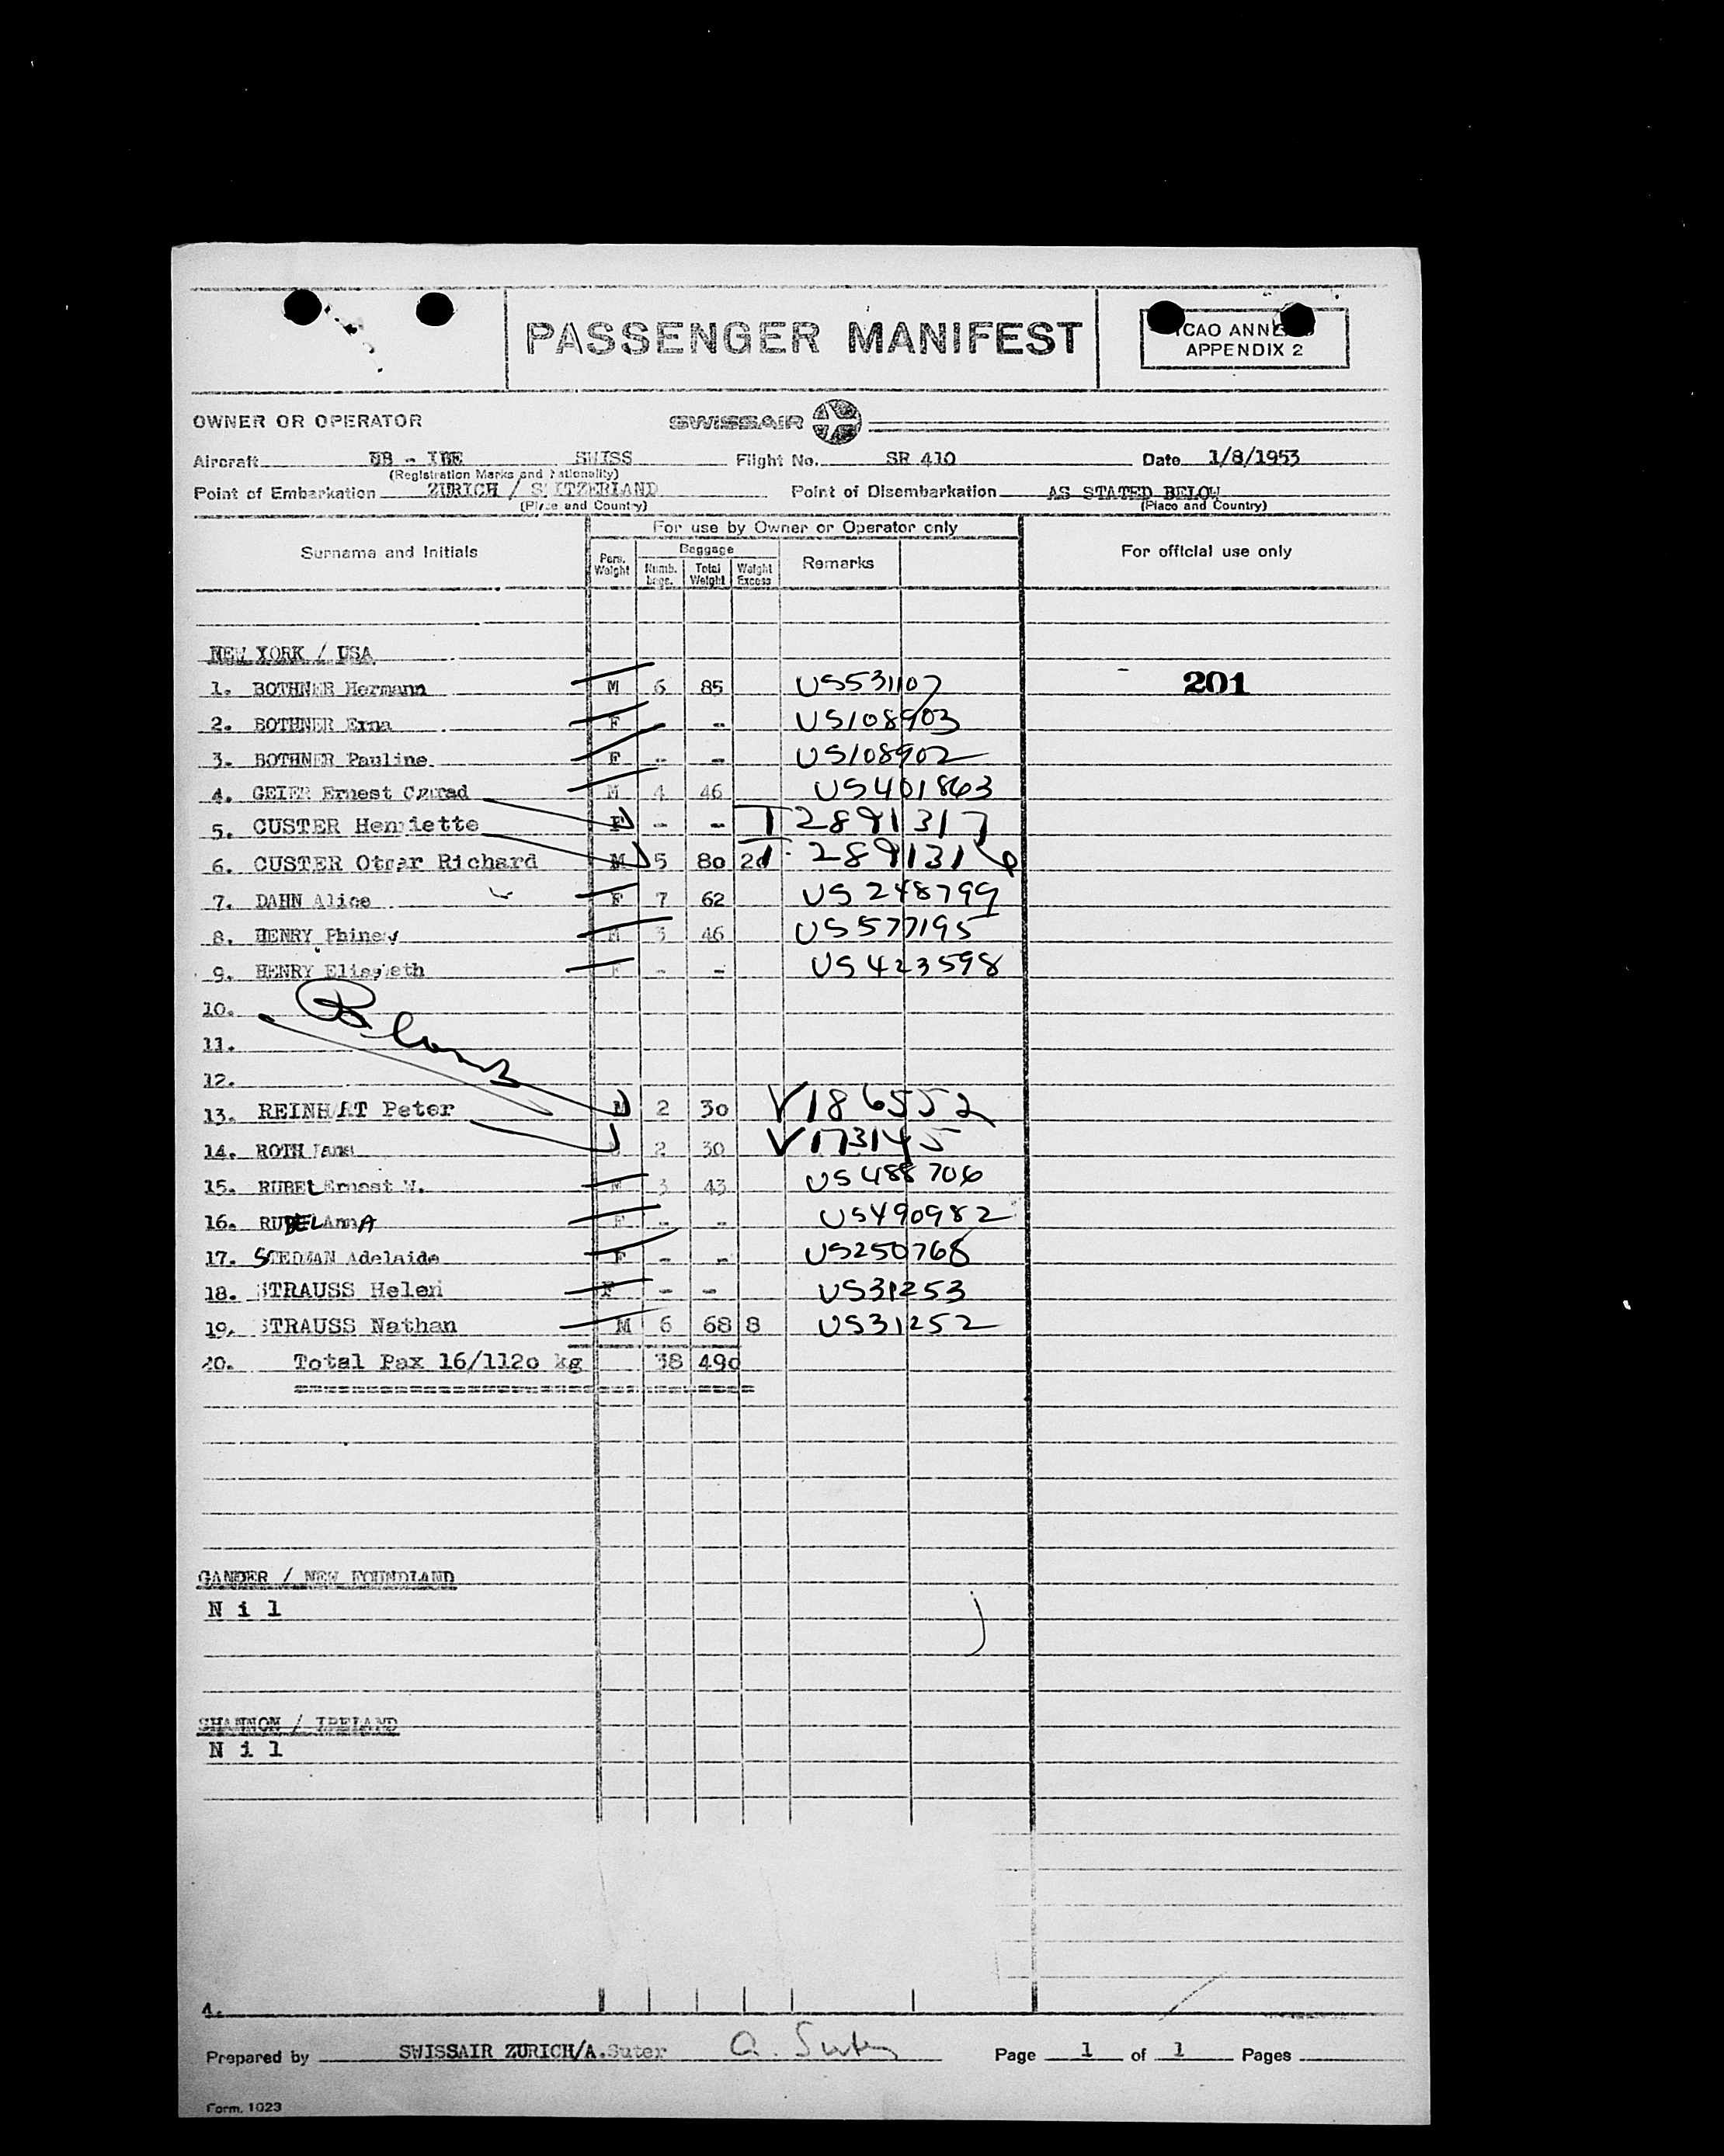 PASSENGER MANIFEST
ICAO ANNEX
APPENDIX 2
OWNER OR OPERATOR SWISSAIR
Aircraft HB - ISWISS Flight No. SR 410 Date 1/8/1953
(Registration Marks and Nationality)
Point of Embarkation ZURICH / SWITZERLAND Point of Disembarkation AS STATED BELOW
(Place and Country) (Place and Country)
For use by Owner or Operator only
Surname and Initials Pers. Weight Baggage Remarks For official use only
Numb. bags. Total Weight Weight Excess
NEW YORK / USA
1. BOTHNER Hermann M 6 85 US531107 201
2. BOTHNER Erna F - -- US108903
3. BOTHNER Pauline F -- -- US108902
4. GEIER Ernest Conrad M 4 46 US401863
5. CUSTER Henriette F -- -- T2891317
6. CUSTER Otmar Richard M 5 80 20 T-2891316
7. DAHN Alice F 7 62 US 248799
8. HENRY M 3 46 US577195
9. HENRY F - -- US423598
10.
11.
12.
13. REINHART Peter M 2 30 V186552
14. ROTH 2 30 V173145
15. RUBEL Ernest W. M 3 43 US488706
16. RUBEL AnnA F -- -- US490982
17. STEDMAN Adelaide F - -- US250768
18. STRAUSS Helen F - - US31253
19. STRAUSS Nathan M 6 68 8 US31252
20. Total Pax 16/1120 kg 38 490
GANDER / NEW FOUNDLAND
N i l
SHANNON / IRELAND
N i l
A.
Prepared by SWISSAIR ZURICH/A.Suter A. Suter Page 1 of 1 Pages
Form. 1023